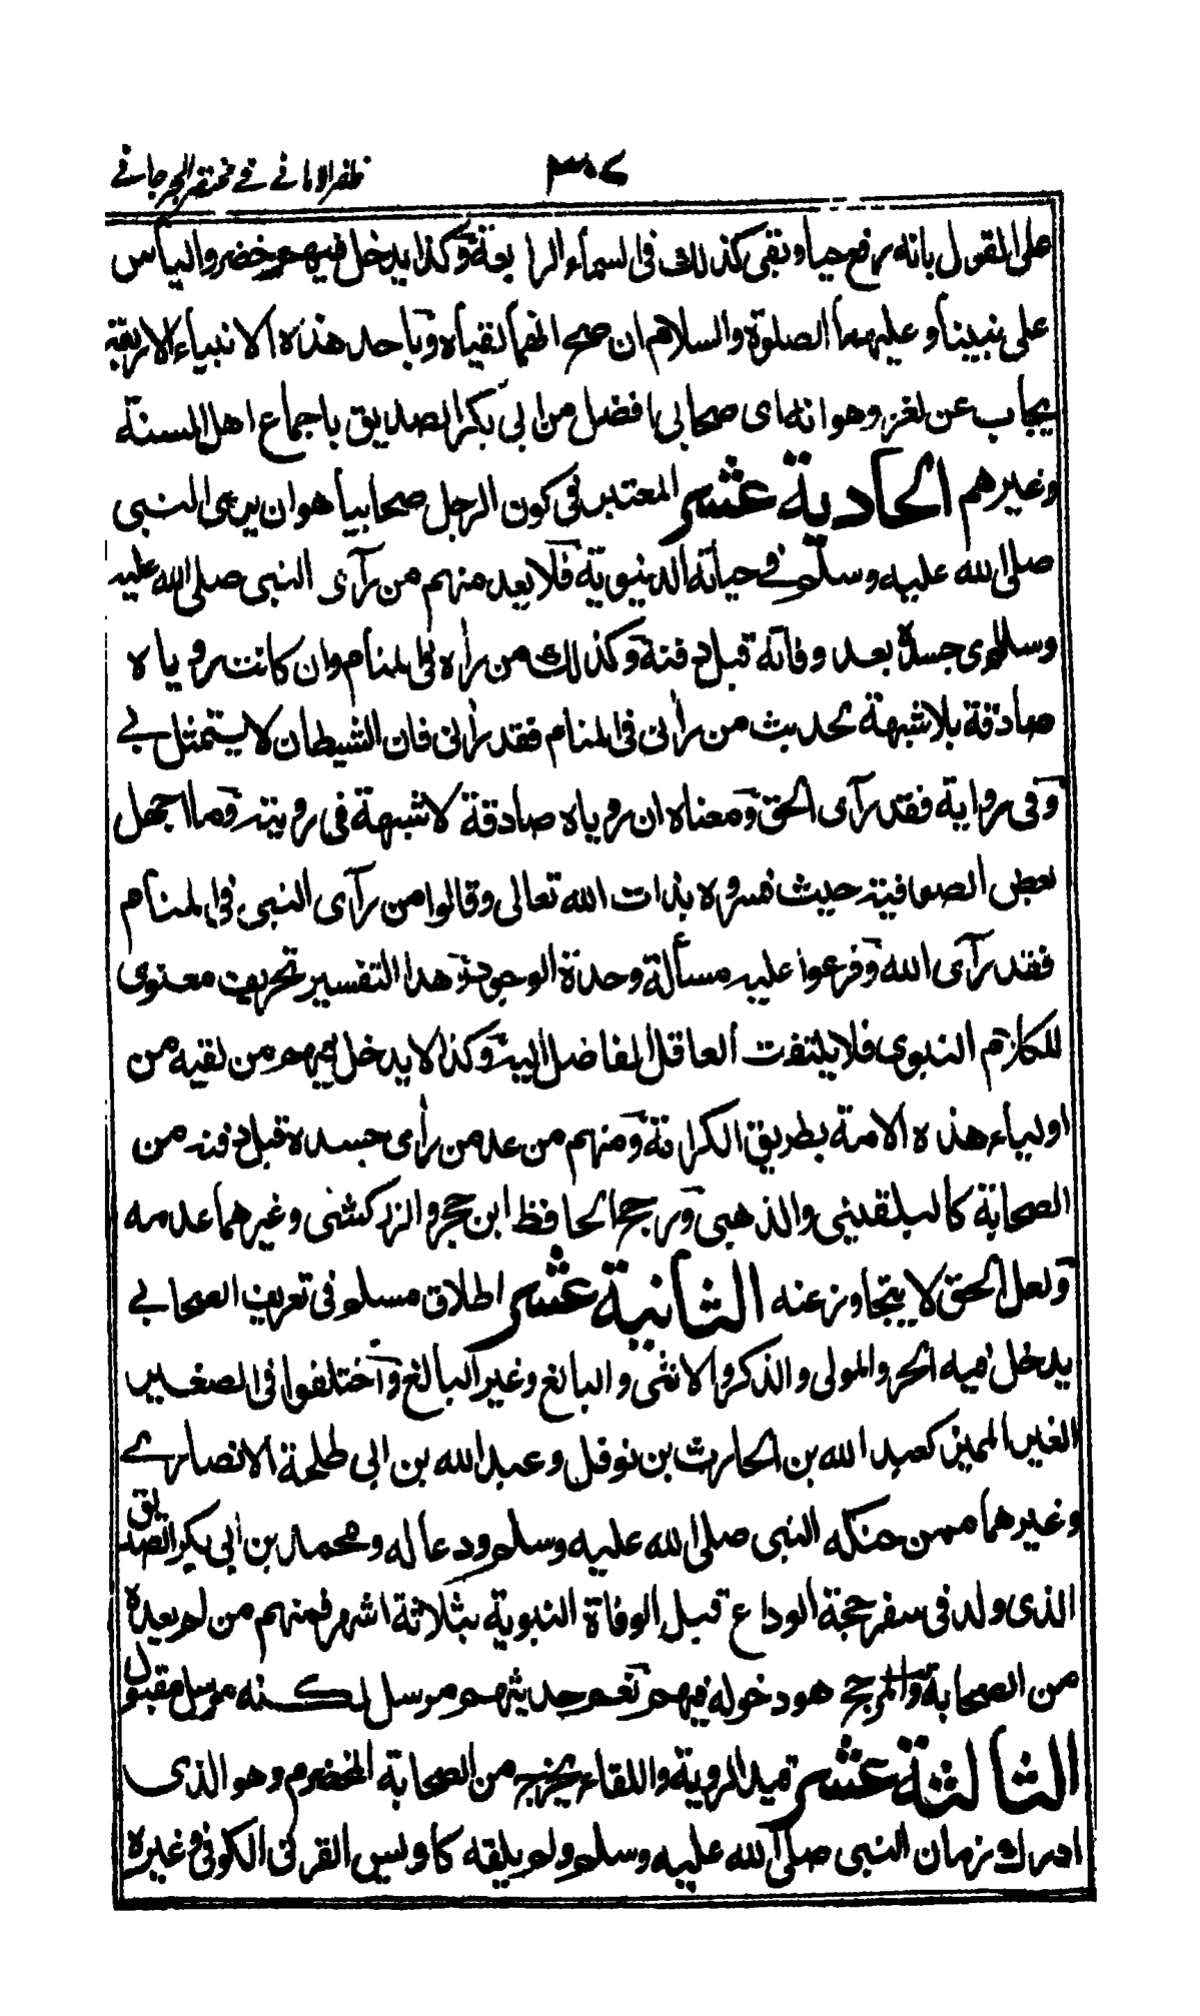 ظفر الامانے فے مختصر الجرجانے
٣٠٧
على القول بانه رفع حيا وبقى كذلك فى السماء الرابعة وكذا يدخل فيهم خضر والياس
على نبينا وعليهما الصلوة والسلام ان صح انهما لقياه وباحد هذه الانبياء الاربعة
يجاب عن لغز وهو انه اى صحابى افضل من ابى بكر الصديق باجماع اهل السنة
وغيرهم الحادية عشر المعتبر فى كون الرجل صحابيا هو ان يرى النبى
صلى الله عليه وسلم فے حياته الدنيوية فلا يعد منهم من رآى النبى صلى الله عليه
وسلم اى جسده بعد وفاته قبل دفنه وكذلك من راه فى المنام وان كانت روياه
صادقة بلا شبهة لحديث من رانى فى المنام فقد رانى فان الشيطان لا يتمثل بے
وفى رواية فقد رآى الحق ومعناه ان روياه صادقة لا شبهة فى رويته وما اجهل
بعض الصوفية حيث فسروه بذات الله تعالى وقالوا من رآى النبى فى المنام
فقد رآى الله وفرعوا عليه مسألة وحدة الوجود وهذا التفسير تحريف معنوى
للكلام النبوى فلا يلتفت العاقل الفاضل اليه وكذا لا يدخل فيهم من لقيه من
اولياء هذه الامة بطريق الكرامة ومنهم من عد من راى جسده قبل دفنه من
الصحابة كالبلقينى والذهبى ورجح الحافظ ابن حجر والزركشى وغيرهما عدمه
ولعل الحق لا يتجاوز عنه الثانية عشر اطلاق مسلم فى تعريف الصحابے
يدخل فيه الحر والمولى والذكر والانثى والبالغ وغير البالغ واختلفوا فى الصغير
الغير المميز كعبد الله بن الحارث بن نوفل وعبد الله بن ابى طلحة الانصارے
وغيرهما ممن حنكه النبى صلى الله عليه وسلم ودعا له ومحمد بن ابى بكر الصديق
الذى ولد فى سفر حجة الوداع قبل الوفاة النبوية بثلاثة اشهر فمنهم من لم يعده
من الصحابة والمرجح هو دخوله فيهم نعم حديثهم مرسل لكنه مرسل مقبول
الثالثة عشر قيد الروية واللقاء يخرج من الصحابة المخضرم وهو الذى
ادرك زمان النبى صلى الله عليه وسلم ولم يلقه كاويس القرنى الكوفى وغيره